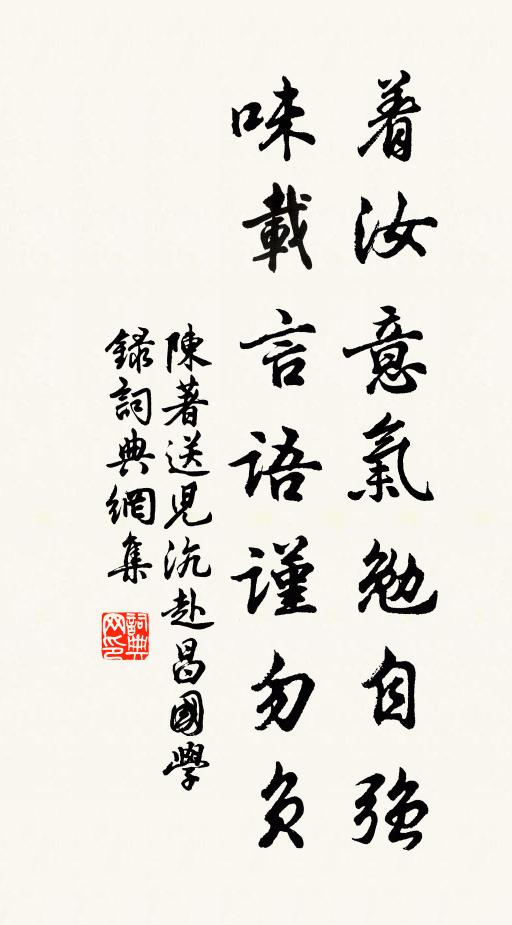 着汝意氣勉自強
味載言語謹勿負
陳著送児沆赴昌國學
錄詞典網集
詞典网印